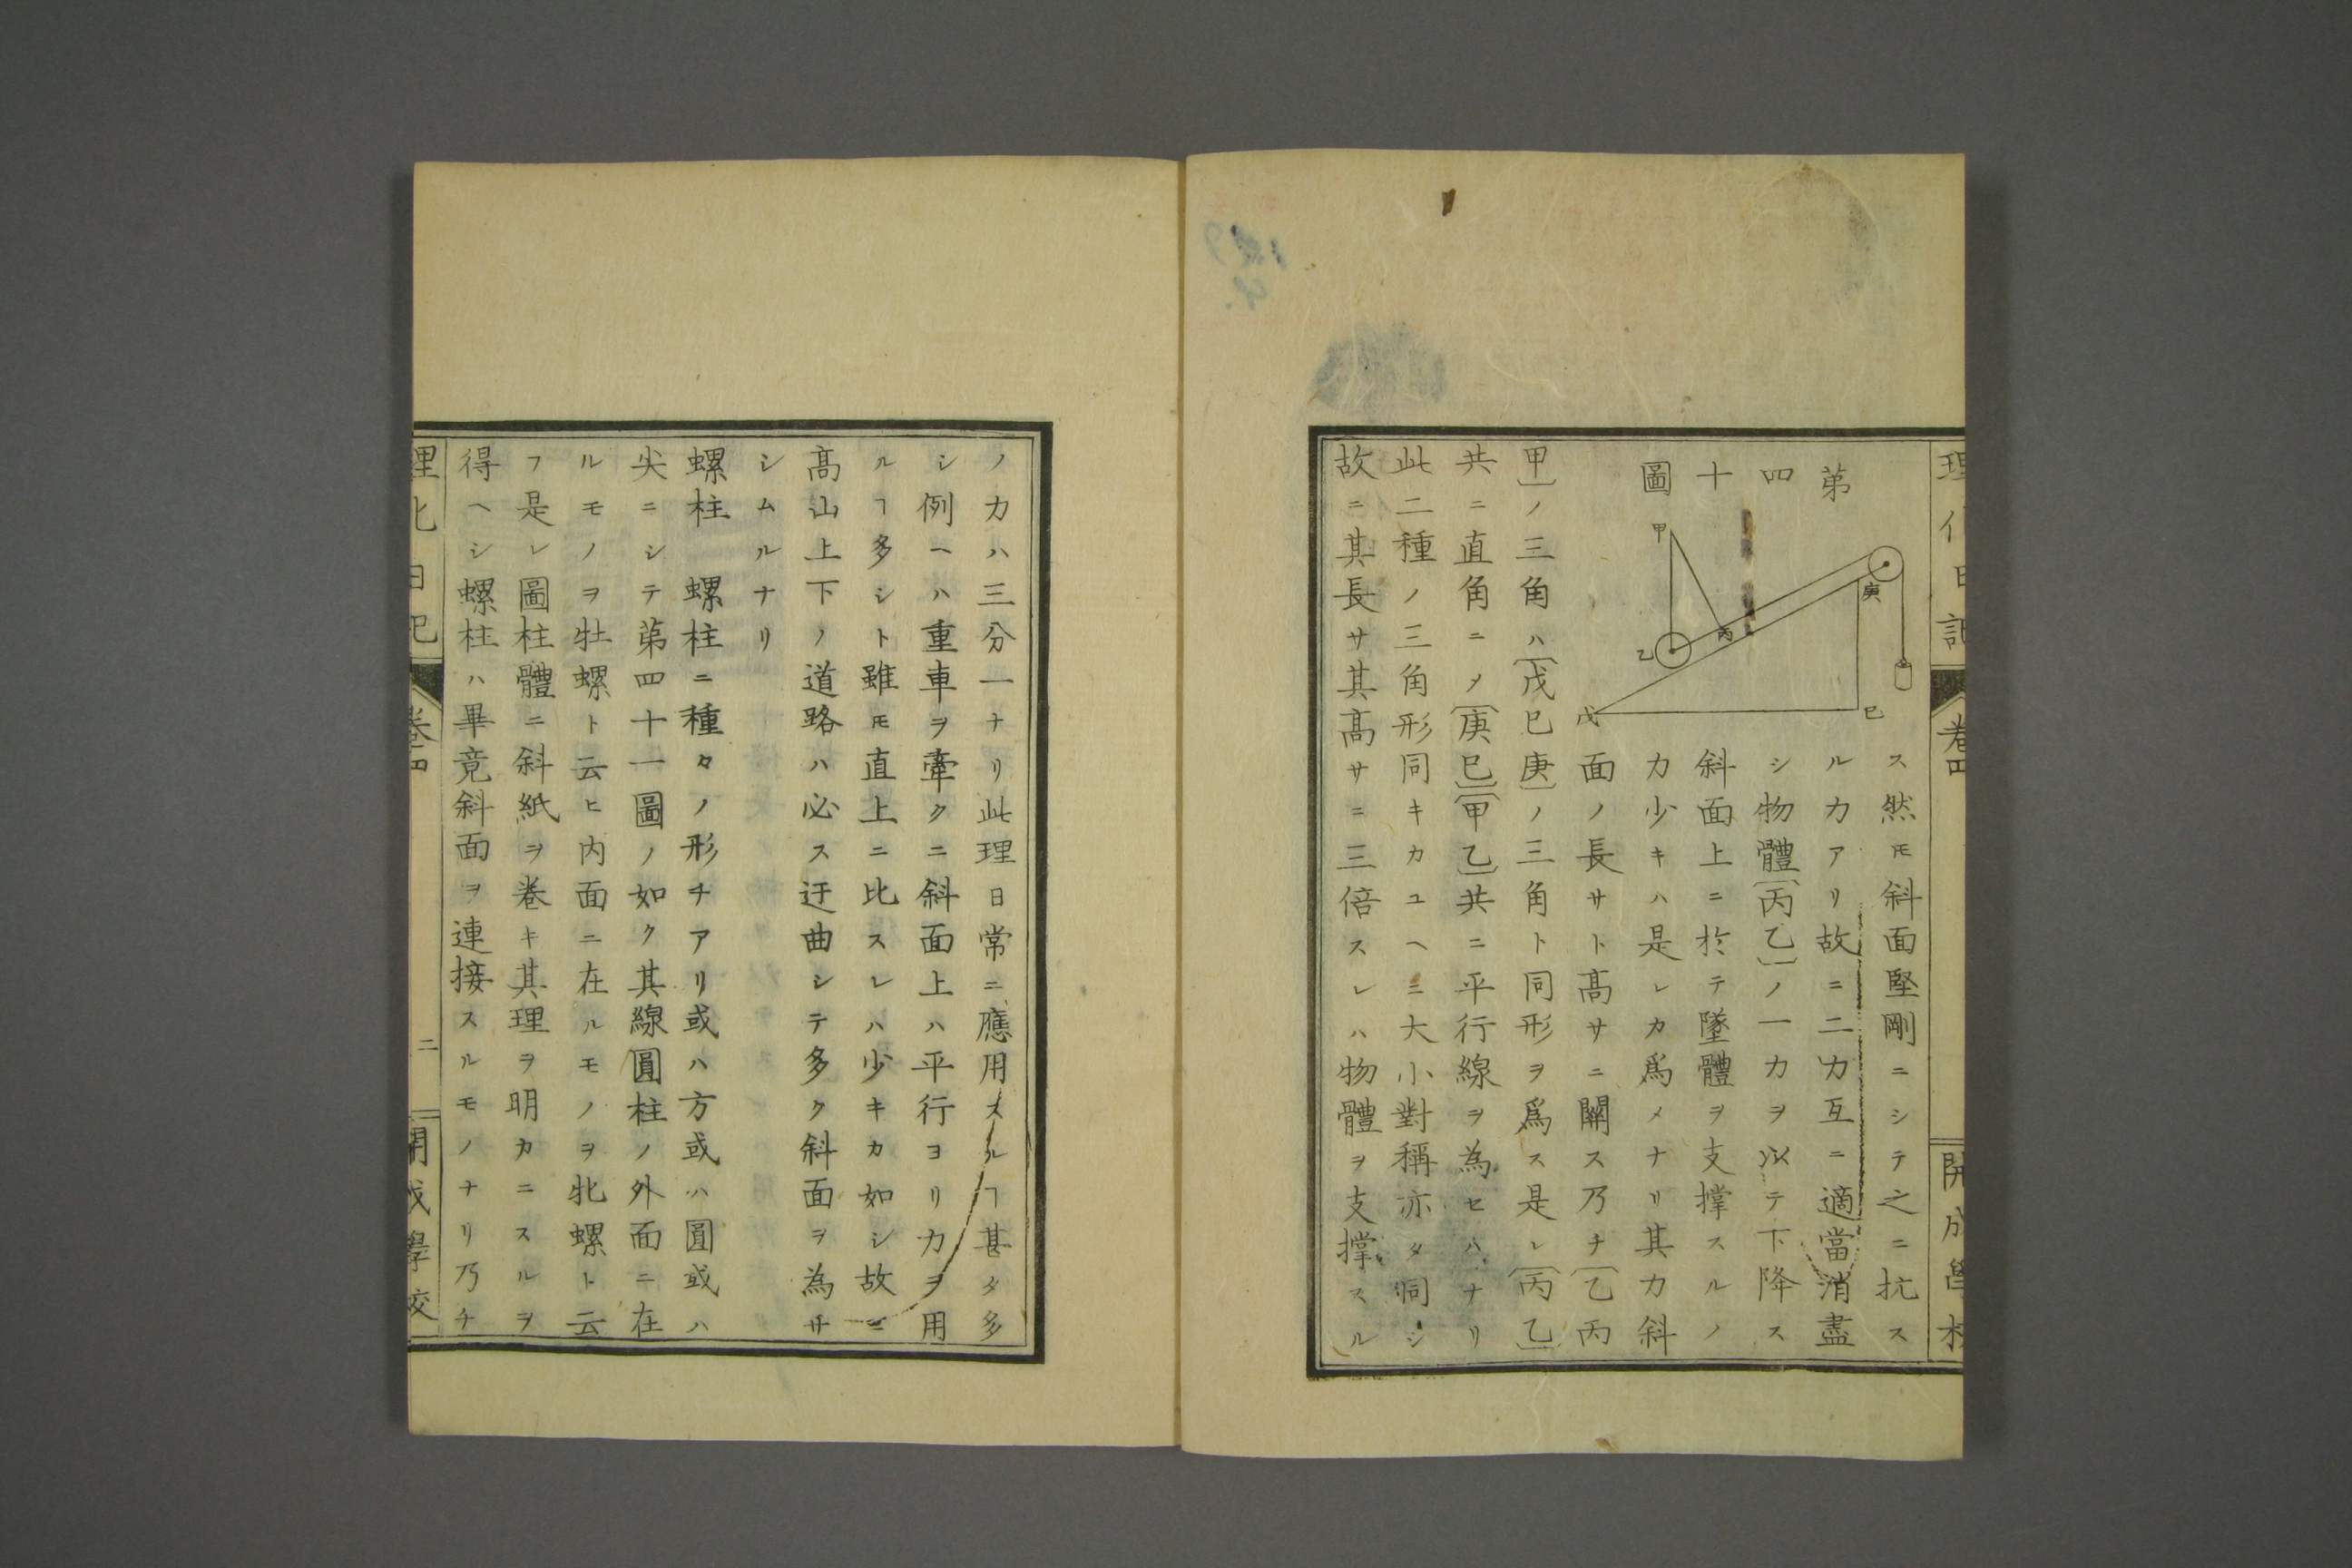 理化日記
卷四
開成學校
第四十圖
甲
乙
丙
戊
庚
巳
ス然𪜈斜面堅剛ニシテ之ニ抗ス
ル力アリ故ニ二力互ニ適當消盡
シ物體〔丙乙〕ノ一力ヲ以テ下降ス
斜面上ニ於テ墜體ヲ支撐スルノ
力少キハ是レカ爲メナリ其力斜
面ノ長サト高サニ關ス乃チ〔乙丙
甲〕ノ三角ハ〔戊巳庚〕ノ三角ト同形ヲ爲ス是レ〔丙乙〕
共ニ直角ニ〆〔庚巳〕〔甲乙〕共ニ平行線ヲ為セハナリ
此二種ノ三角形同キカユヘニ大小對稱亦タ同シ
故ニ其長サ其高サニ三倍スレハ物體ヲ支撐スル
ノ力ハ三分一ナリ此理日常ニ應用スルヿ甚タ多
シ例ヘハ重車ヲ牽クニ斜面上ハ平行ヨリ力ヲ用
ルヿ多シト雖𪜈直上ニ比スレハ少キカ如シ故ニ
高山上下ノ道路ハ必ス迂曲シテ多ク斜面ヲ為サ
シムルナリ
螺柱　螺柱ニ種々ノ形チアリ或ハ方或ハ圓或ハ
尖ニシテ第四十一圖ノ如ク其線圓柱ノ外面ニ在
ルモノヲ牡螺ト云ヒ内面ニ在ルモノヲ牝螺ト云
フ是レ圖柱體ニ斜紙ヲ巻キ其理ヲ明カニスルヲ
得ヘシ螺柱ハ畢竟斜面ヲ連接スルモノナリ乃チ
理化日記
卷四
二
開成學校